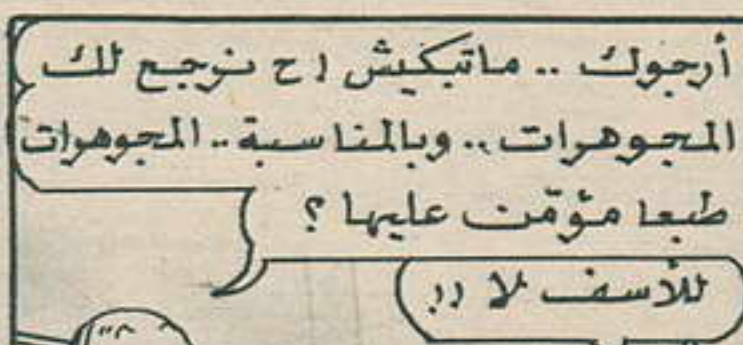 أرجوك .. ماتبكيش رح نرجع لك
المجوهرات .. وبالمناسبة .. المجوهرات
طبعا مؤمّن عليها ؟
للأسف لا !!